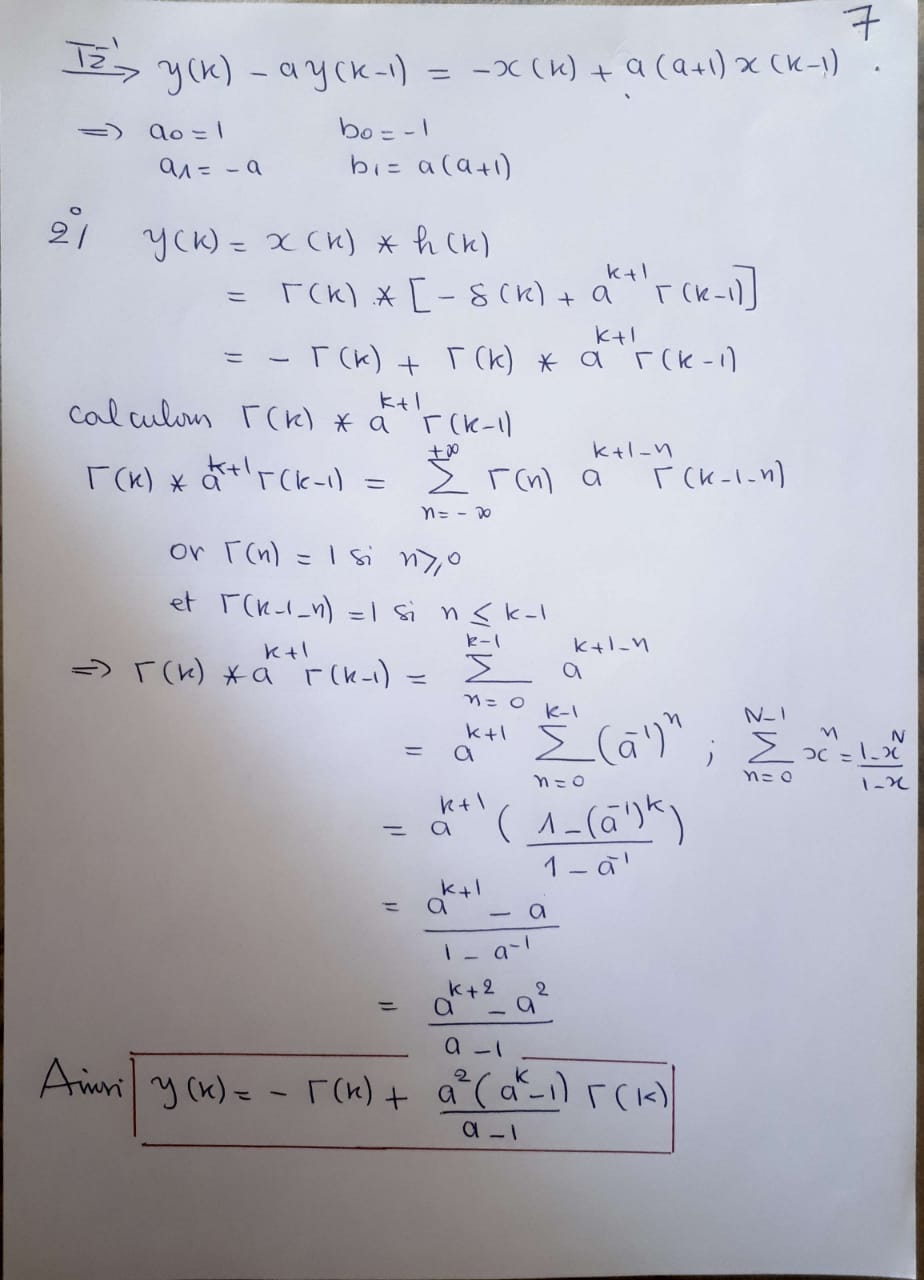 7
TZ⁻¹→ y(k) - a y(k-1) = -x(k) + a(a+1) x(k-1) .
=> a₀ = 1 b₀ = -1
a₁ = -a b₁ = a(a+1)
2°/ y(k) = x(k) * h(k)
= Γ(k) * [-δ(k) + a^{k+1} Γ(k-1)]
= - Γ(k) + Γ(k) * a^{k+1} Γ(k-1)
calculons Γ(k) * a^{k+1} Γ(k-1)
Γ(k) * a^{k+1} Γ(k-1) = Σ_{n=-∞}^{+∞} Γ(n) a^{k+1-n} Γ(k-1-n)
or Γ(n) = 1 si n ⩾ 0
et Γ(k-1-n) = 1 si n ≤ k-1
=> Γ(k) * a^{k+1} Γ(k-1) = Σ_{n=0}^{k-1} a^{k+1-n}
= a^{k+1} Σ_{n=0}^{k-1} (a⁻¹)ⁿ ; Σ_{n=0}^{N-1} xⁿ = (1-x^N)/(1-x)
= a^{k+1} ( (1-(a⁻¹)^k)/(1-a⁻¹) )
= (a^{k+1} - a)/(1-a⁻¹)
= (a^{k+2} - a²)/(a-1)
Ainsi y(k) = - Γ(k) + a²(a^k-1)/(a-1) Γ(k)